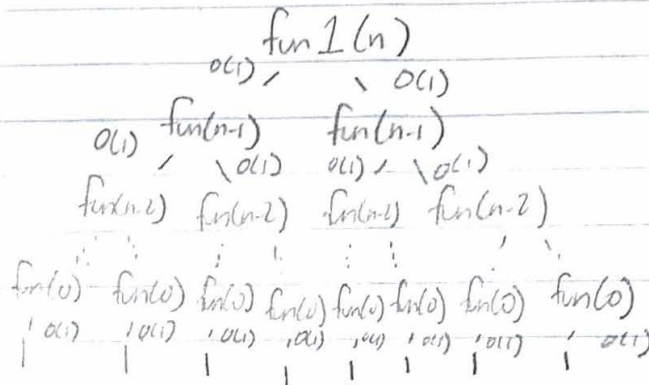 fun1(n)
O(1) O(1)
fun(n-1) fun(n-1)
O(1) O(1) O(1) O(1)
fun(n-2) fun(n-2) fun(n-2) fun(n-2)
fun(0) fun(0) fun(0) fun(0) fun(0) fun(0) fun(0) fun(0)
O(1) O(1) O(1) O(1) O(1) O(1) O(1) O(1)
1 1 1 1 1 1 1 1